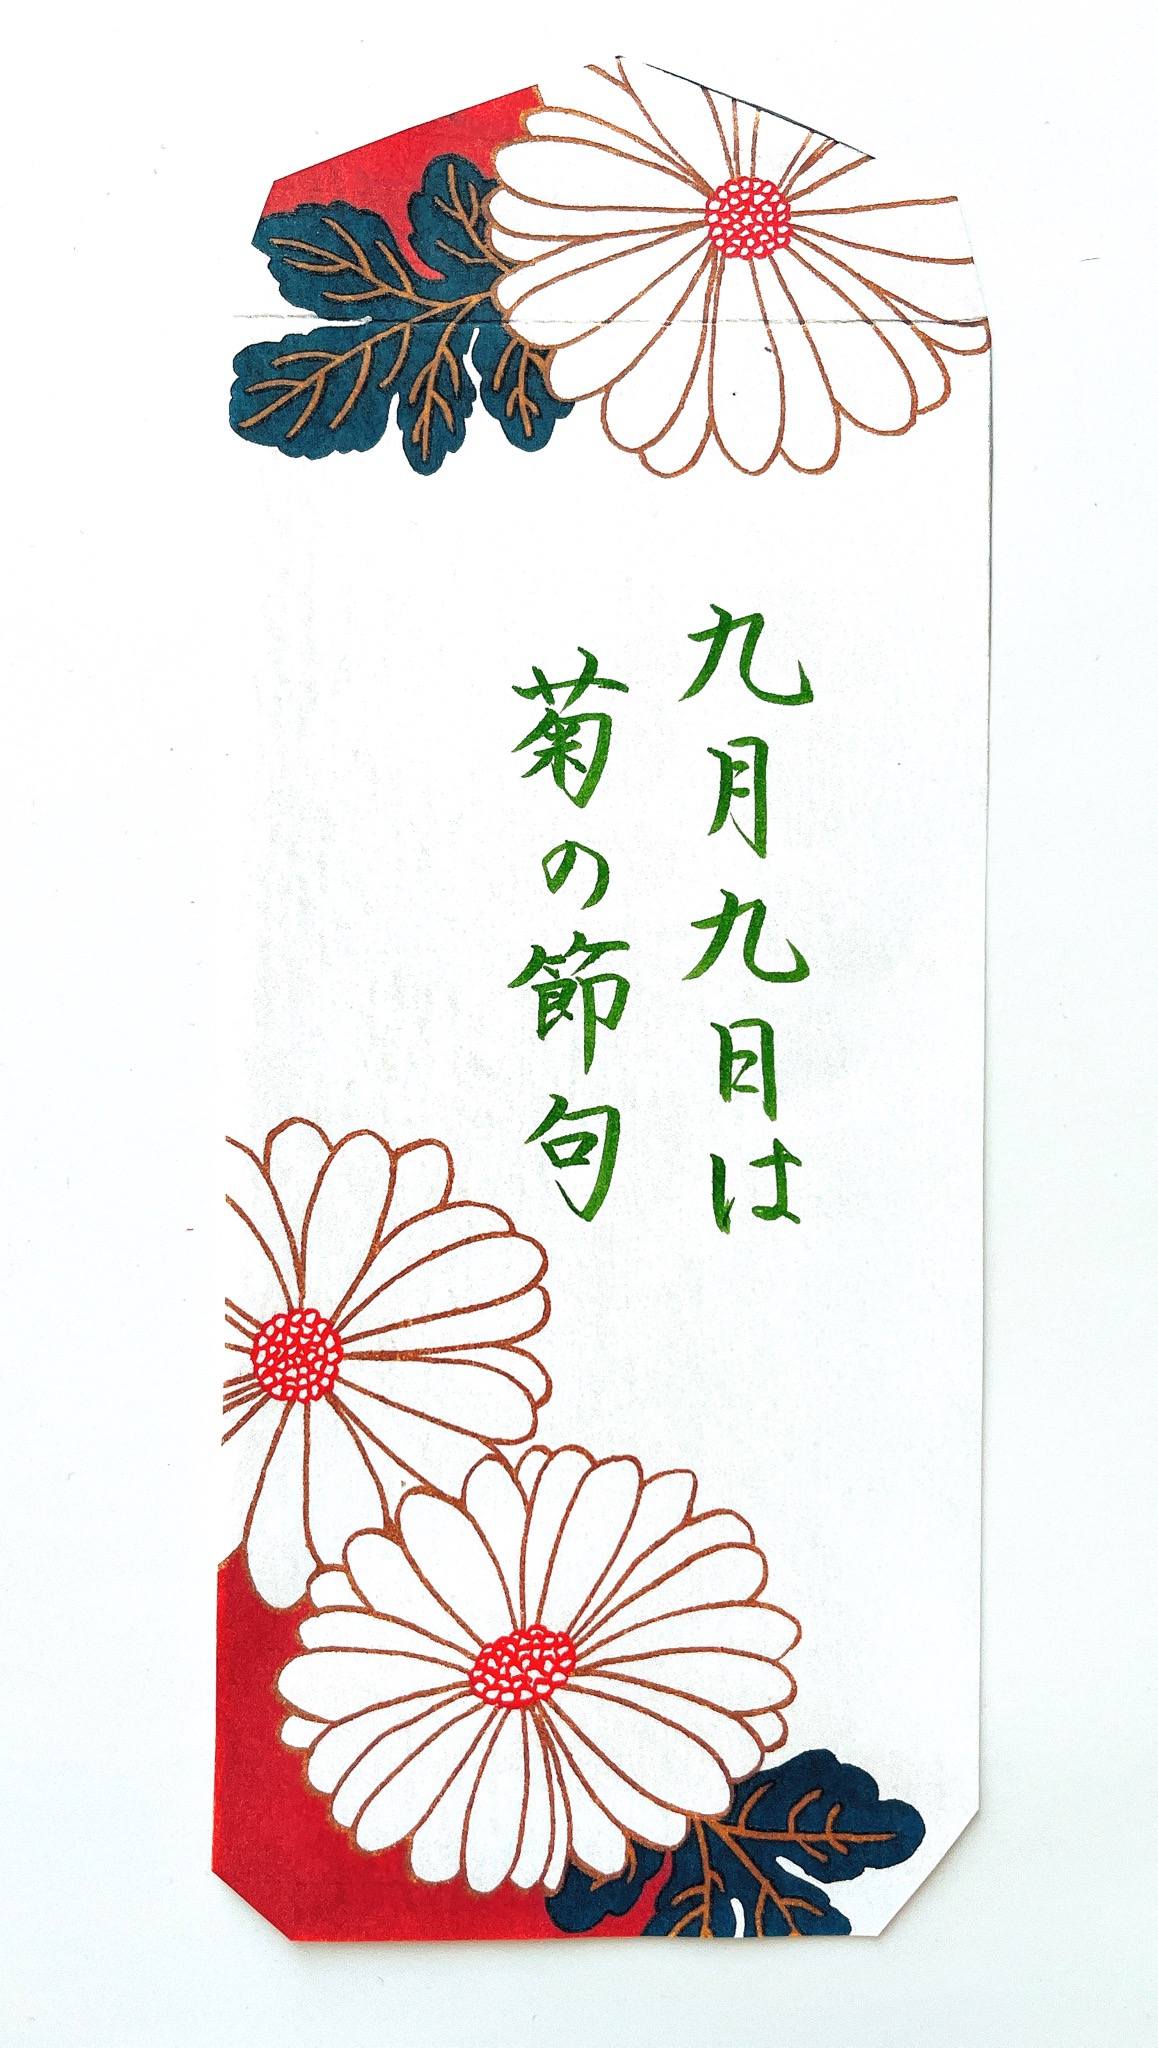 九月九日は
菊の節句